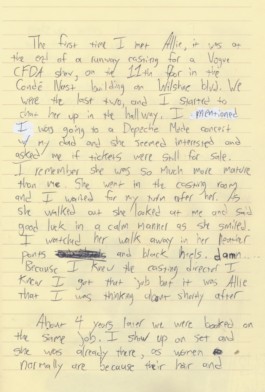 The first time I met Allie, it was at
the end of a runway casting for a Vogue
CFDA show, on the 11th floor in the
Condé Nast building on Wilshire blvd. We
were the last two, and I started to
chat her up in the hallway. I mentioned
I was going to a Depeche Mode concert
w/ my dad and she seemed interested and
asked me if tickets were still for sale.
I remember she was so much more mature
than me. She went in the casting room
and I waited for my turn after her. As
she walked out she looked at me and said
good luck in a calm manner as she smiled.
I watched her walk away in her
pants and black heels. damn...
Because I knew the casting director I
knew I got that job but it was Allie
that I was thinking about shortly after

About 4 years later we were booked on
the same job. I show up on set and
she was already there, as women
normally are because their hair and